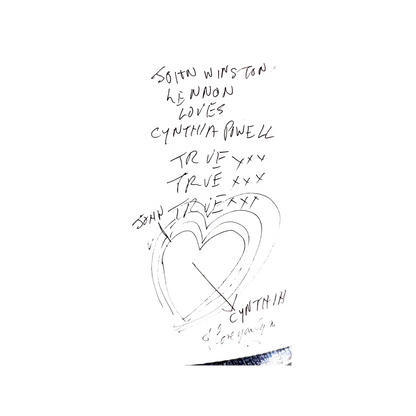 JOHN WINSTON
LENNON
LOVES
CYNTHIA POWELL
TRUE xxx
TRUE xxx
TRUE xxx
JOHN
CYNTHIA